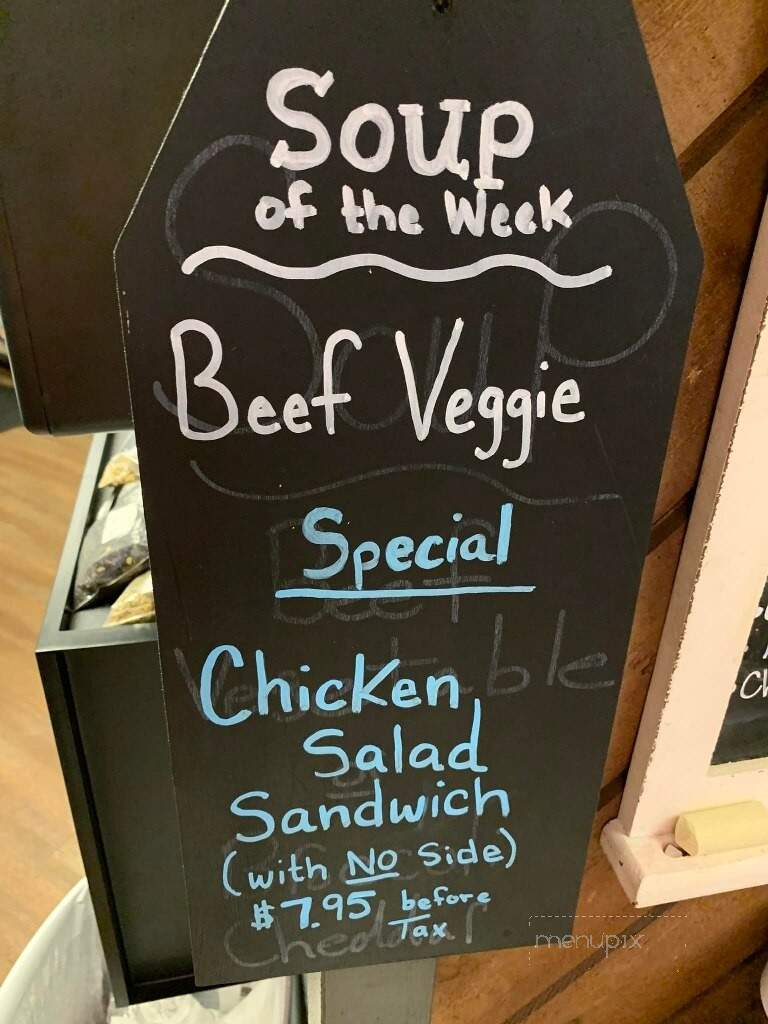 Soup
of the Week
Beef Veggie
Special
Chicken
Salad
Sandwich
(with NO Side)
$7.95 before
Tax
Soup
Beef
Vegetable
Cheddar
menupix